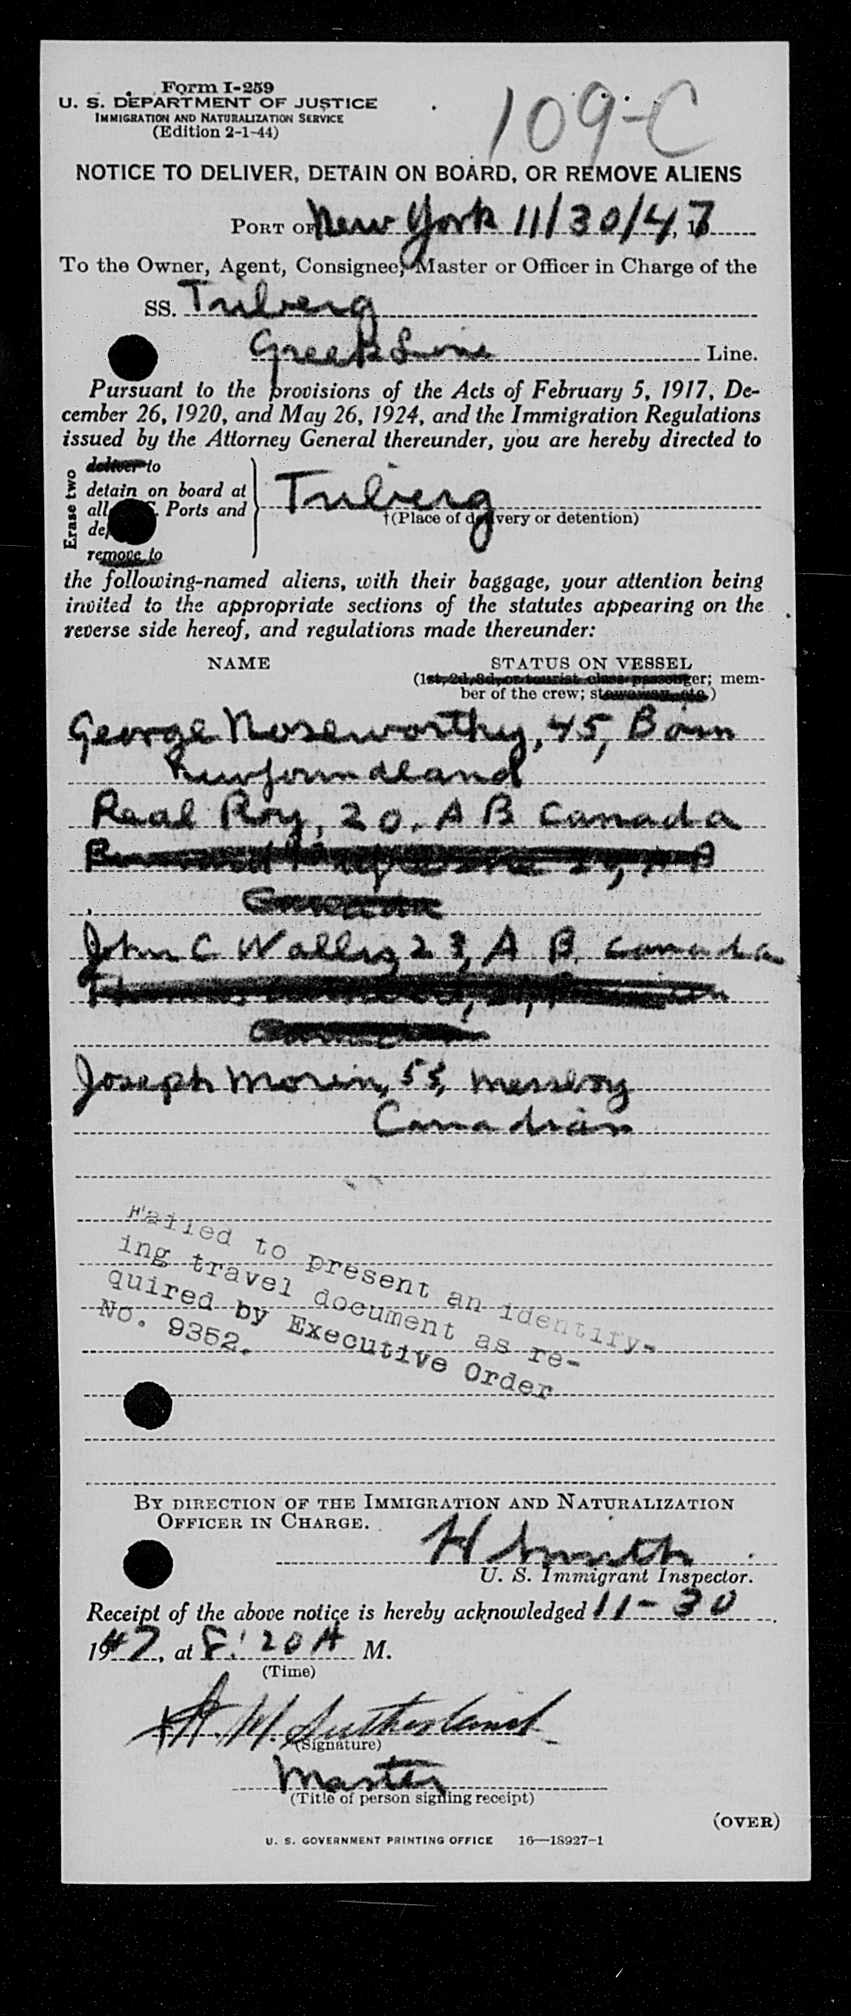 Form I-259
U. S. DEPARTMENT OF JUSTICE
IMMIGRATION AND NATURALIZATION SERVICE
(Edition 2-1-44)
109-C
NOTICE TO DELIVER, DETAIN ON BOARD, OR REMOVE ALIENS
PORT OF New York 11/30/47
To the Owner, Agent, Consignee, Master or Officer in Charge of the
SS. Triberg
Greek Line Line.
Pursuant to the provisions of the Acts of February 5, 1917, De-
cember 26, 1920, and May 26, 1924, and the Immigration Regulations
issued by the Attorney General thereunder, you are hereby directed to
Erase two
deliver to
detain on board at
all Ports and
remove to
Triberg
†(Place of delivery or detention)
the following-named aliens, with their baggage, your attention being
invited to the appropriate sections of the statutes appearing on the
reverse side hereof, and regulations made thereunder:
NAME STATUS ON VESSEL
(1st, 2d, 3d, or tourist class passenger; mem-
ber of the crew; stowaway, etc.)
George Noseworthy, 45, Bosn
Newfoundland
Real Roy, 20, A B Canada
Canada
John C Wallis, 23, A B. Canada
Canadian
Joseph Morin, 55, messboy
Canadian
Failed to present an identify-
ing travel document as re-
quired by Executive Order
No. 9352.
BY DIRECTION OF THE IMMIGRATION AND NATURALIZATION
OFFICER IN CHARGE.
H Smith
U. S. Immigrant Inspector.
Receipt of the above notice is hereby acknowledged 11-30
1947, at 8:20 A M.
(Time)
A. M. Sutherland
(Signature)
Master
(Title of person signing receipt)
(OVER)
U. S. GOVERNMENT PRINTING OFFICE 16—18927-1